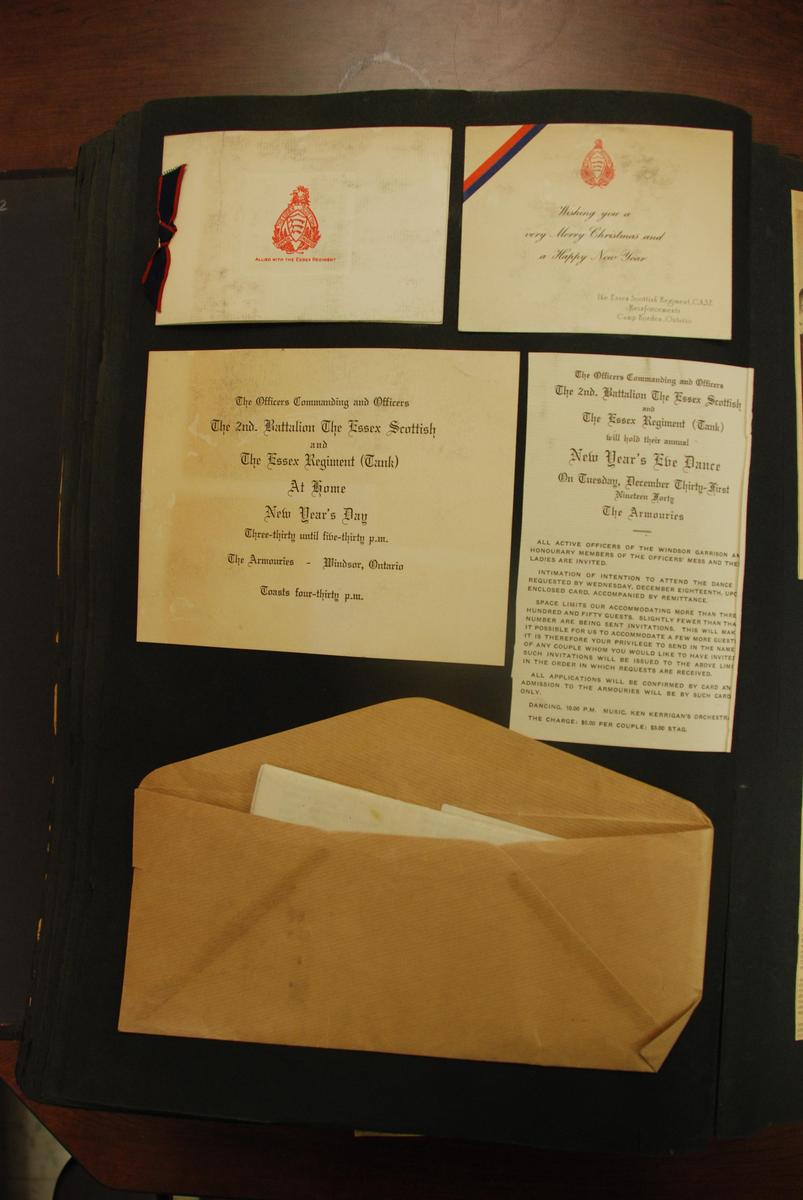 2
ALLIED WITH THE ESSEX REGIMENT
Wishing you a
very Merry Christmas and
a Happy New Year
The Essex Scottish Regiment, C.A.S.F.
Reinforcements
Camp Borden, Ontario
The Officers Commanding and Officers
The 2nd. Battalion The Essex Scottish
and
The Essex Regiment (Tank)
At Home
New Year's Day
Three-thirty until five-thirty p.m.
The Armouries - Windsor, Ontario
Toasts four-thirty p.m.
The Officers Commanding and Officers
The 2nd. Battalion The Essex Scottish
and
The Essex Regiment (Tank)
will hold their annual
New Year's Eve Dance
On Tuesday, December Thirty-First
Nineteen Forty
The Armouries
ALL ACTIVE OFFICERS OF THE WINDSOR GARRISON AN
HONOURARY MEMBERS OF THE OFFICERS' MESS AND THE
LADIES ARE INVITED.
INTIMATION OF INTENTION TO ATTEND THE DANCE
REQUESTED BY WEDNESDAY, DECEMBER EIGHTEENTH, UPO
ENCLOSED CARD, ACCOMPANIED BY REMITTANCE.
SPACE LIMITS OUR ACCOMMODATING MORE THAN THRE
HUNDRED AND FIFTY GUESTS. SLIGHTLY FEWER THAN THA
NUMBER ARE BEING SENT INVITATIONS. THIS WILL MAK
IT POSSIBLE FOR US TO ACCOMMODATE A FEW MORE GUEST
IT IS THEREFORE YOUR PRIVILEGE TO SEND IN THE NAME
OF ANY COUPLE WHOM YOU WOULD LIKE TO HAVE INVITE
SUCH INVITATIONS WILL BE ISSUED TO THE ABOVE LIMI
IN THE ORDER IN WHICH REQUESTS ARE RECEIVED.
ALL APPLICATIONS WILL BE CONFIRMED BY CARD AN
ADMISSION TO THE ARMOURIES WILL BE BY SUCH CARD
ONLY.
DANCING, 10.00 P.M. MUSIC, KEN KERRIGAN'S ORCHESTR
THE CHARGE: $5.00 PER COUPLE; $3.00 STAG.